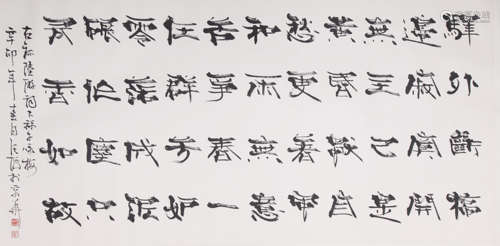 驛外斷橋
邊寂寞開
無主已是
黃昏獨自
愁更著風
和雨無意
苦爭春一
任群芳妒
零落成泥
碾作塵只
有香如故
右錄陸游詞卜算子咏梅
辛卯年 月 於京華